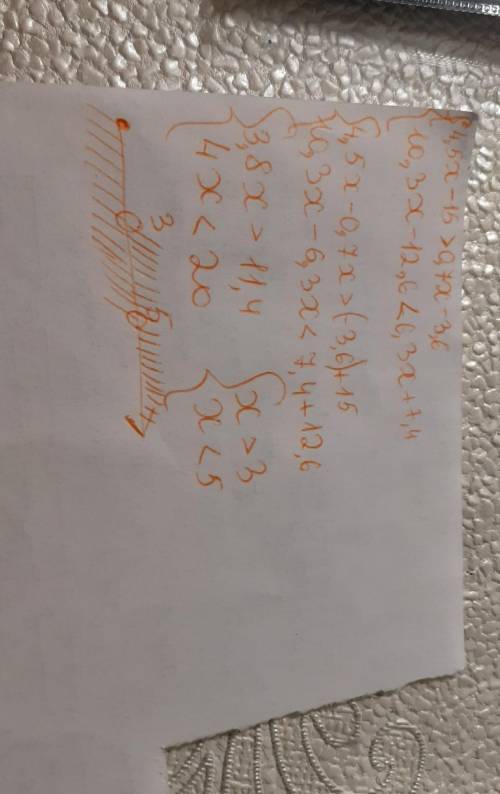 { 4,5x-15 > 0,7x-3,6
{ 10,3x-12,6 < 6,3x+7,4
{ 4,5x-0,7x > (-3,6)+15
{ 10,3x-6,3x < 7,4+12,6
{ 3,8x > 11,4 { x > 3
{ 4x < 20 { x < 5
3 5